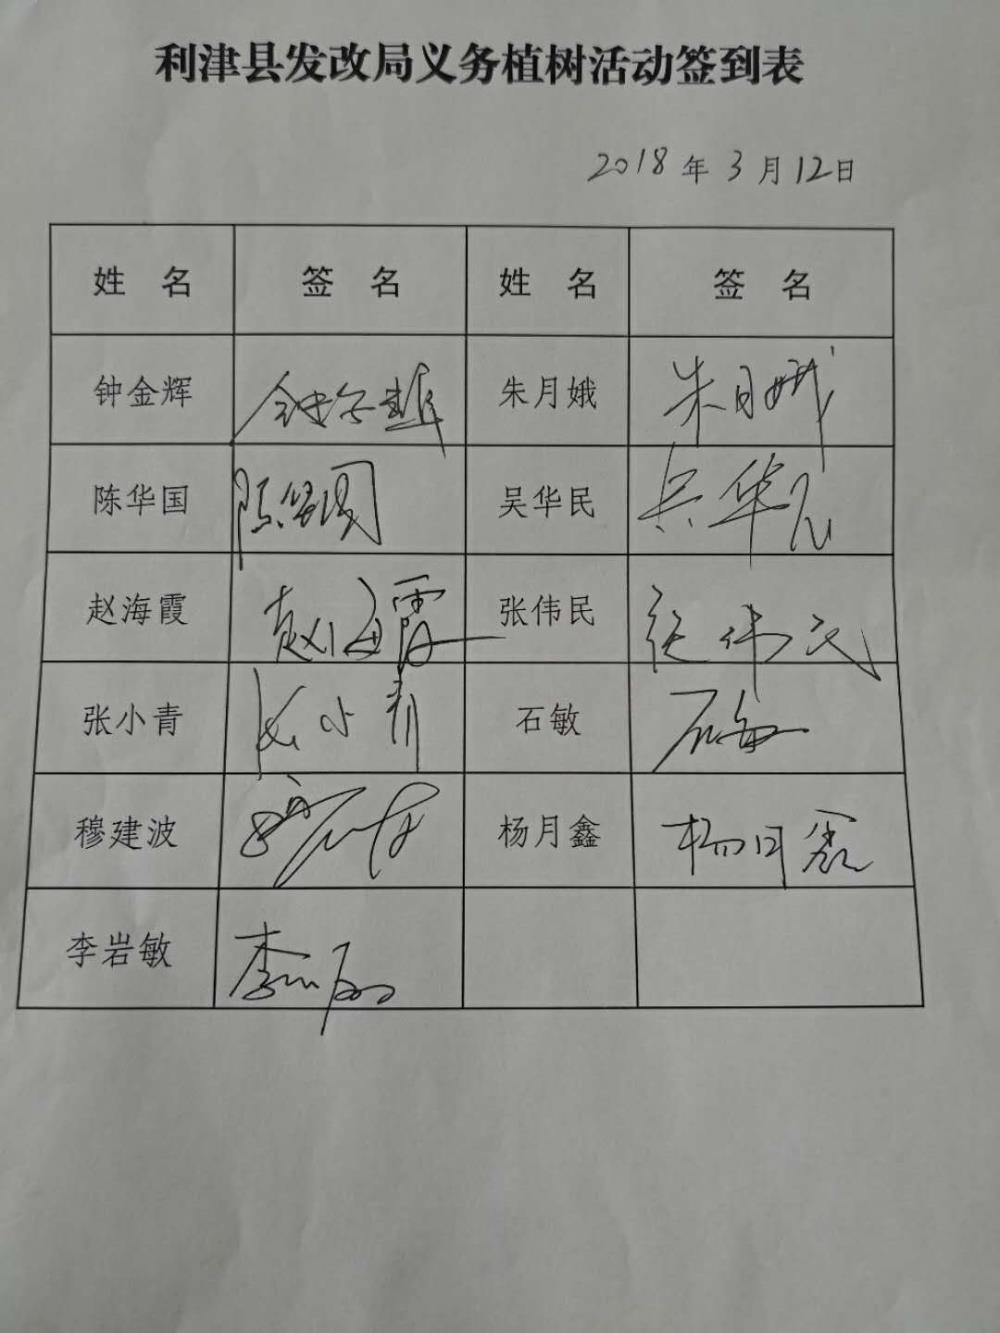 利津县发改局义务植树活动签到表
2018年3月12日
姓 名 签 名 姓 名 签 名
钟金辉 钟金辉 朱月娥 朱月娥
陈华国 陈华国 吴华民 吴华民
赵海霞 赵海霞 张伟民 张伟民
张小青 张小青 石敏 石敏
穆建波 杨月鑫 杨月鑫
李岩敏 李岩敏